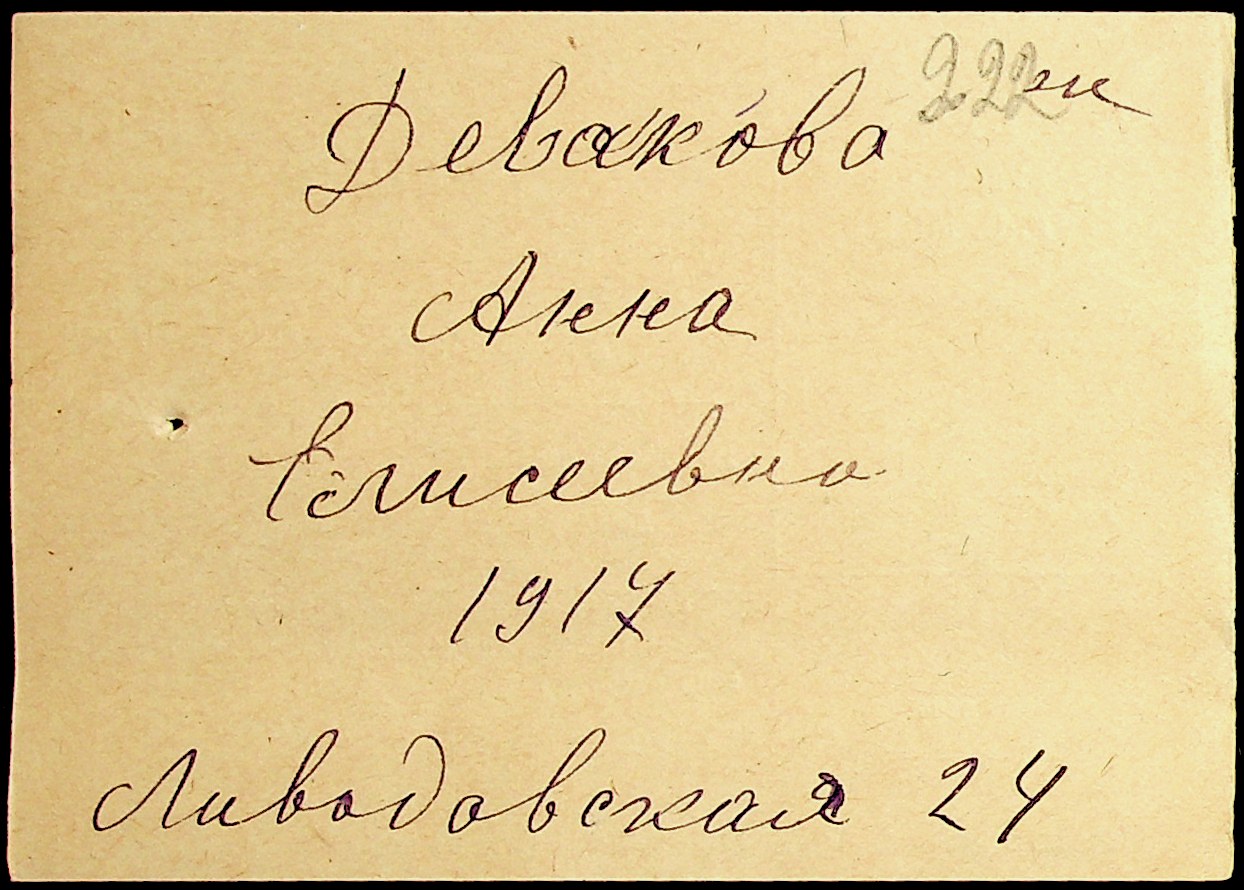 Девакова 222
Анна
Елисеевна
1917
Ливадовская 24